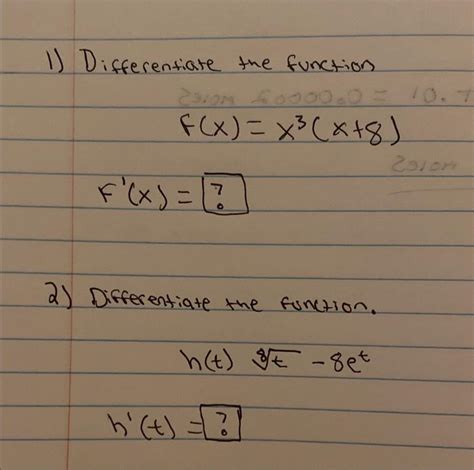 1) Differentiate the function
F(x) = x³(x+8)
F'(x) = ?
2) Differentiate the function.
h(t) ∜t - 8eᵗ
h'(t) = ?